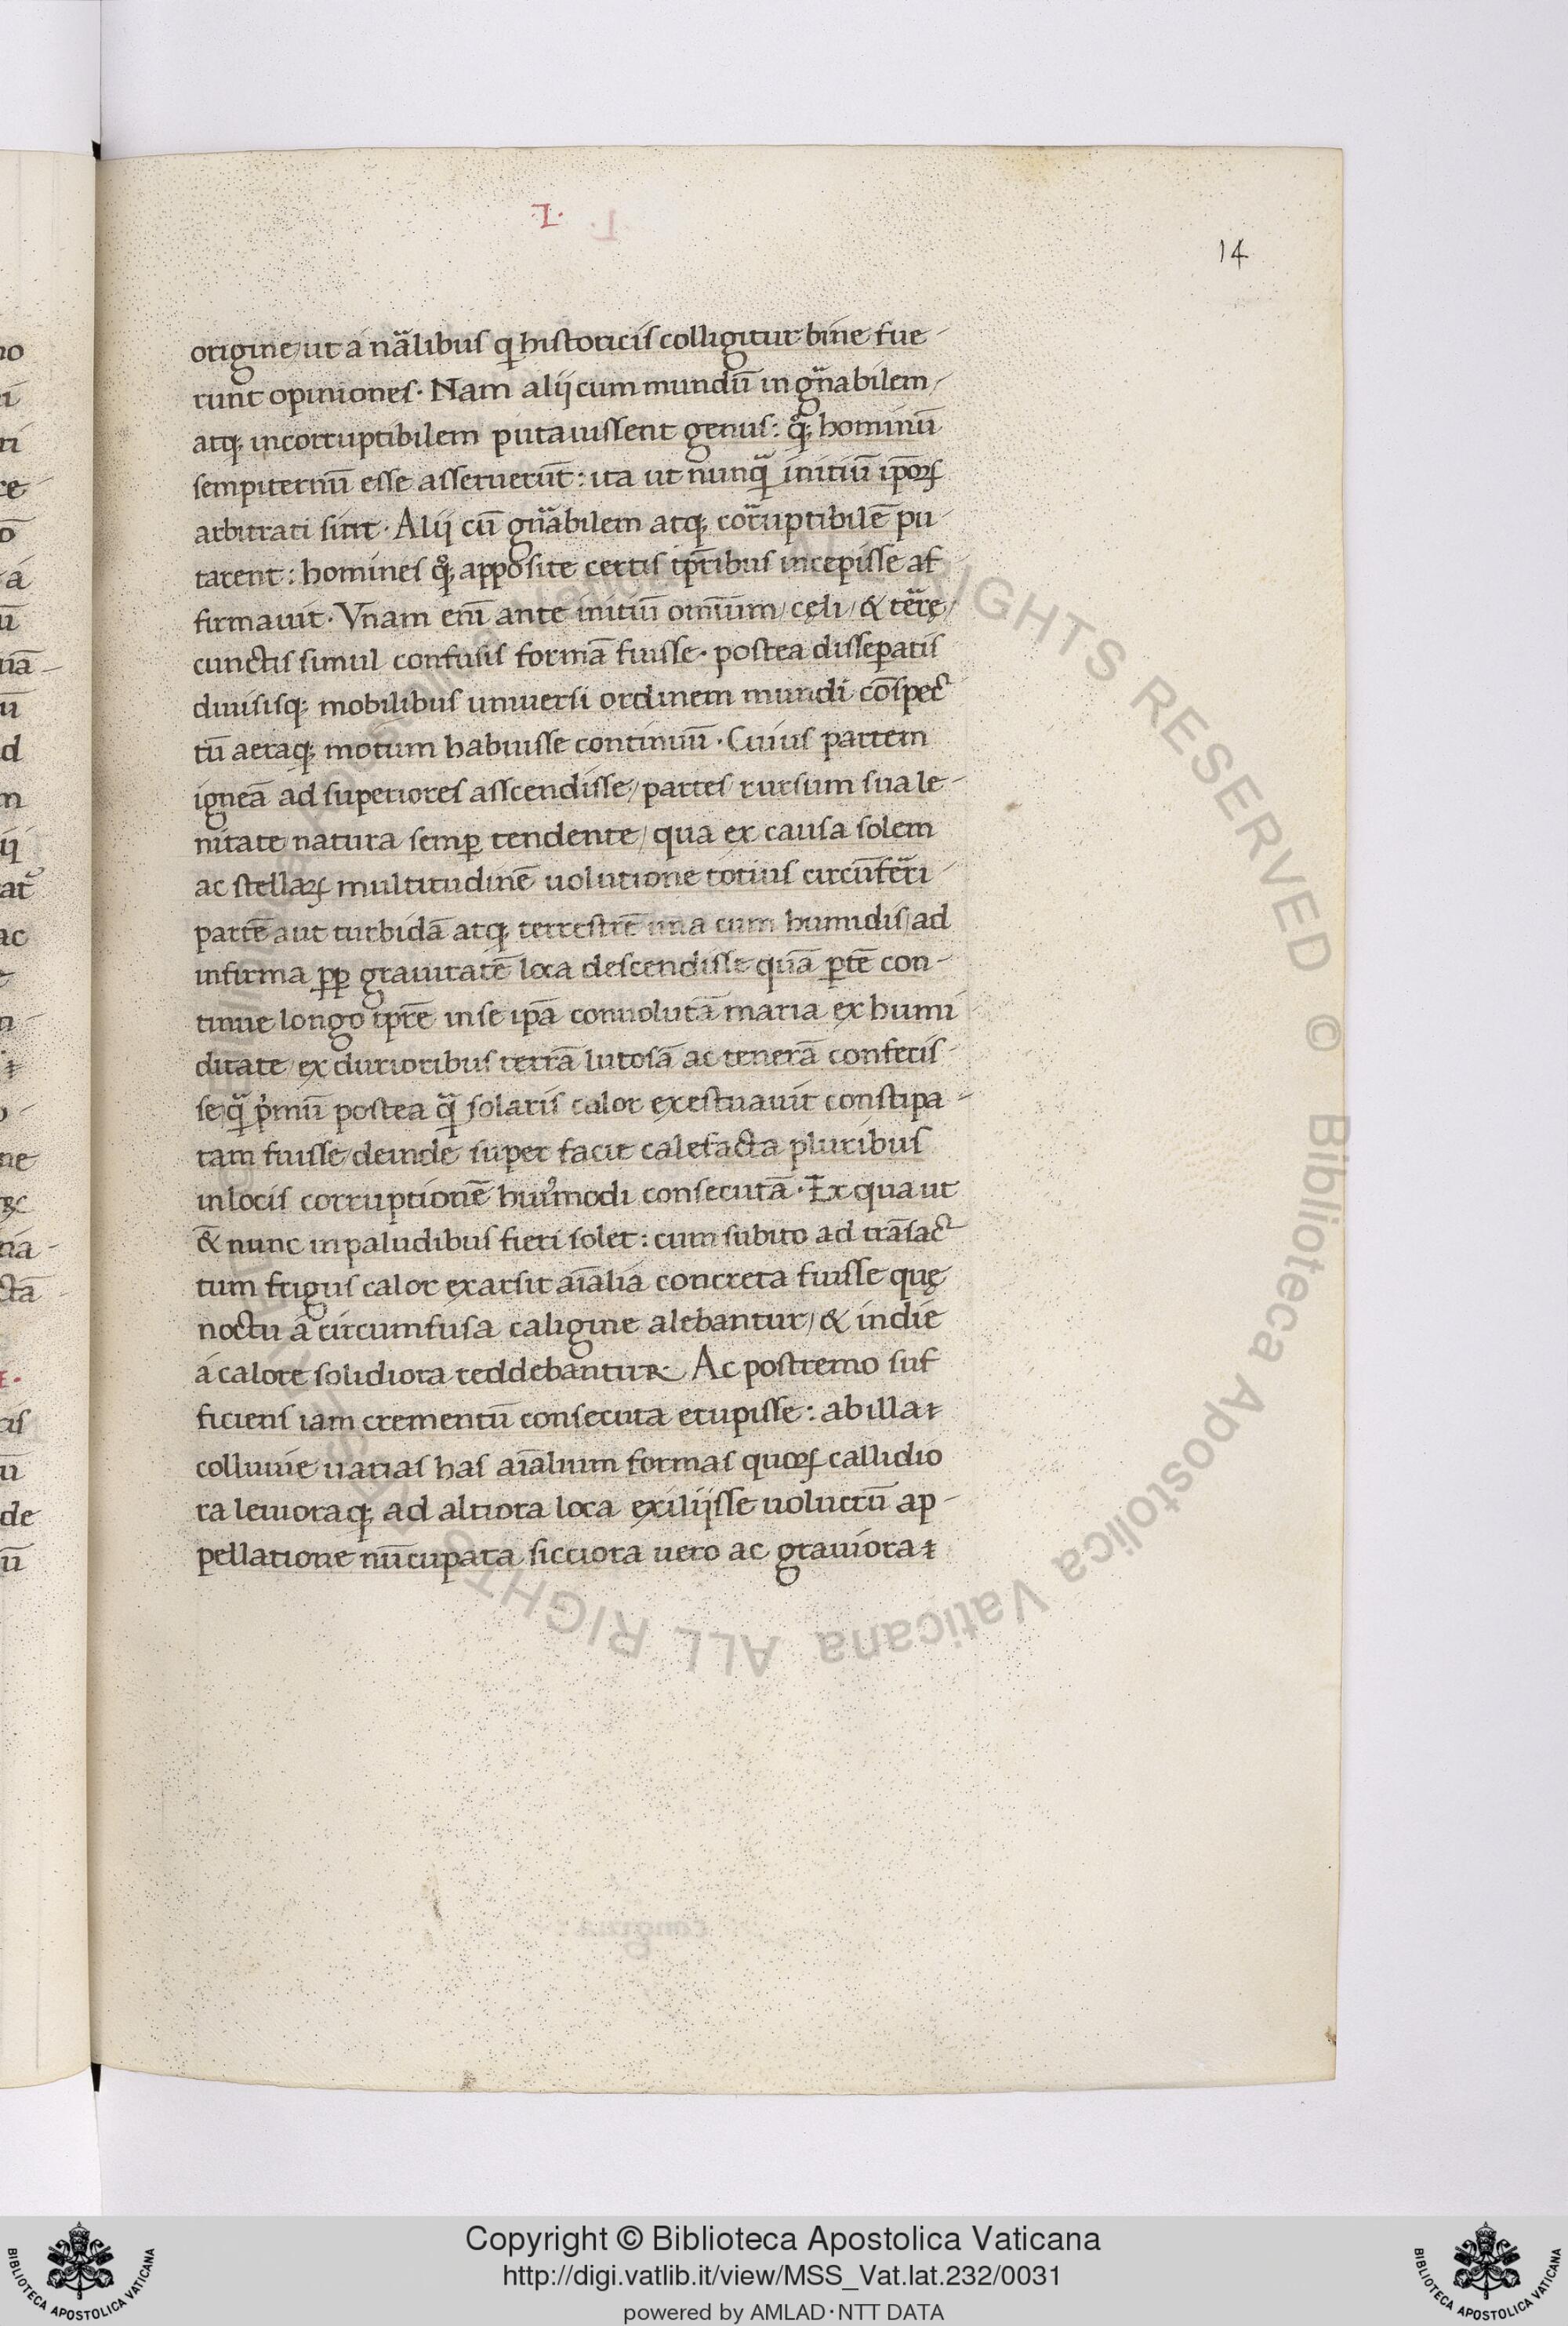 ·I·
14
origine/ ut a nãlibus ꝗ historicis colligitur bine fue-
runt opiniones· Nam alij cum mundū in gñabilem/
atq; incorruptibilem putauissent genus: qͦq; hominū
sempiternū esse asseruerūt: ita ut nunqᷓ initiū ip̄oꝝ
arbitrati sint· Alij cū gñabilem atq; corᷓuptibilē pu-
tarent: homines qͦq; apposite certis tp̄ribus incepisse af
firmauit· Vnam enī ante initiū omīum/ cęli/ & terᷓę/
cunctis simul confusis formā fuisse· postea disseꝑatis
diuisisq; mobilibus uniuersi ordinem mundi cōspec
tū aeraq; motum habuisse continuū· Cuius partem
igneā ad superiores asscendisse/ partes rursum sua le-
nitate natura semꝑ tendente/ qua ex causa solem
ac stellaꝝ multitudinē uolutione totius circūferᷓi-
partē aut turbidā atq; terrestrē una cum humidis/ ad
infirma ꝓꝑ grauitatē loca descendisse quā ꝑtē con-
tinue longo tp̄re in se ipā conuolutā maria ex humi
ditate/ ex durioribus terrā lutosā ac tenerā confecis-
se qᷓ pͥmū postea qᷓ solaris calor exestuauit constipa-
tam fuisse deinde super facit calefacta pluribus
in locis corruptionē huiꝰmodi consecutā· Ex qua ut
& nunc in paludibus fieri solet: cum subito ad trāsac
tum frigus calor exarsit aīalia concreta fuisse quę
noctu a circumfusa caligine alebantur/ & in die
a calore solidiora reddebantur Ac postremo suf
ficiens iam crementū consecuta erupisse: ab illa
colluuie uarias has aīalium formas quoꝝ callidio
ra leuioraq; ad altiora loca exilijsse uolucrū ap-
pellatione nūcupata sicciora uero ac grauiora
Copyright © Biblioteca Apostolica Vaticana
http://digi.vatlib.it/view/MSS_Vat.lat.232/0031
powered by AMLAD·NTT DATA
BIBLIOTECA APOSTOLICA VATICANA
BIBLIOTECA APOSTOLICA VATICANA
© Biblioteca Apostolica Vaticana ALL RIGHTS RESERVED